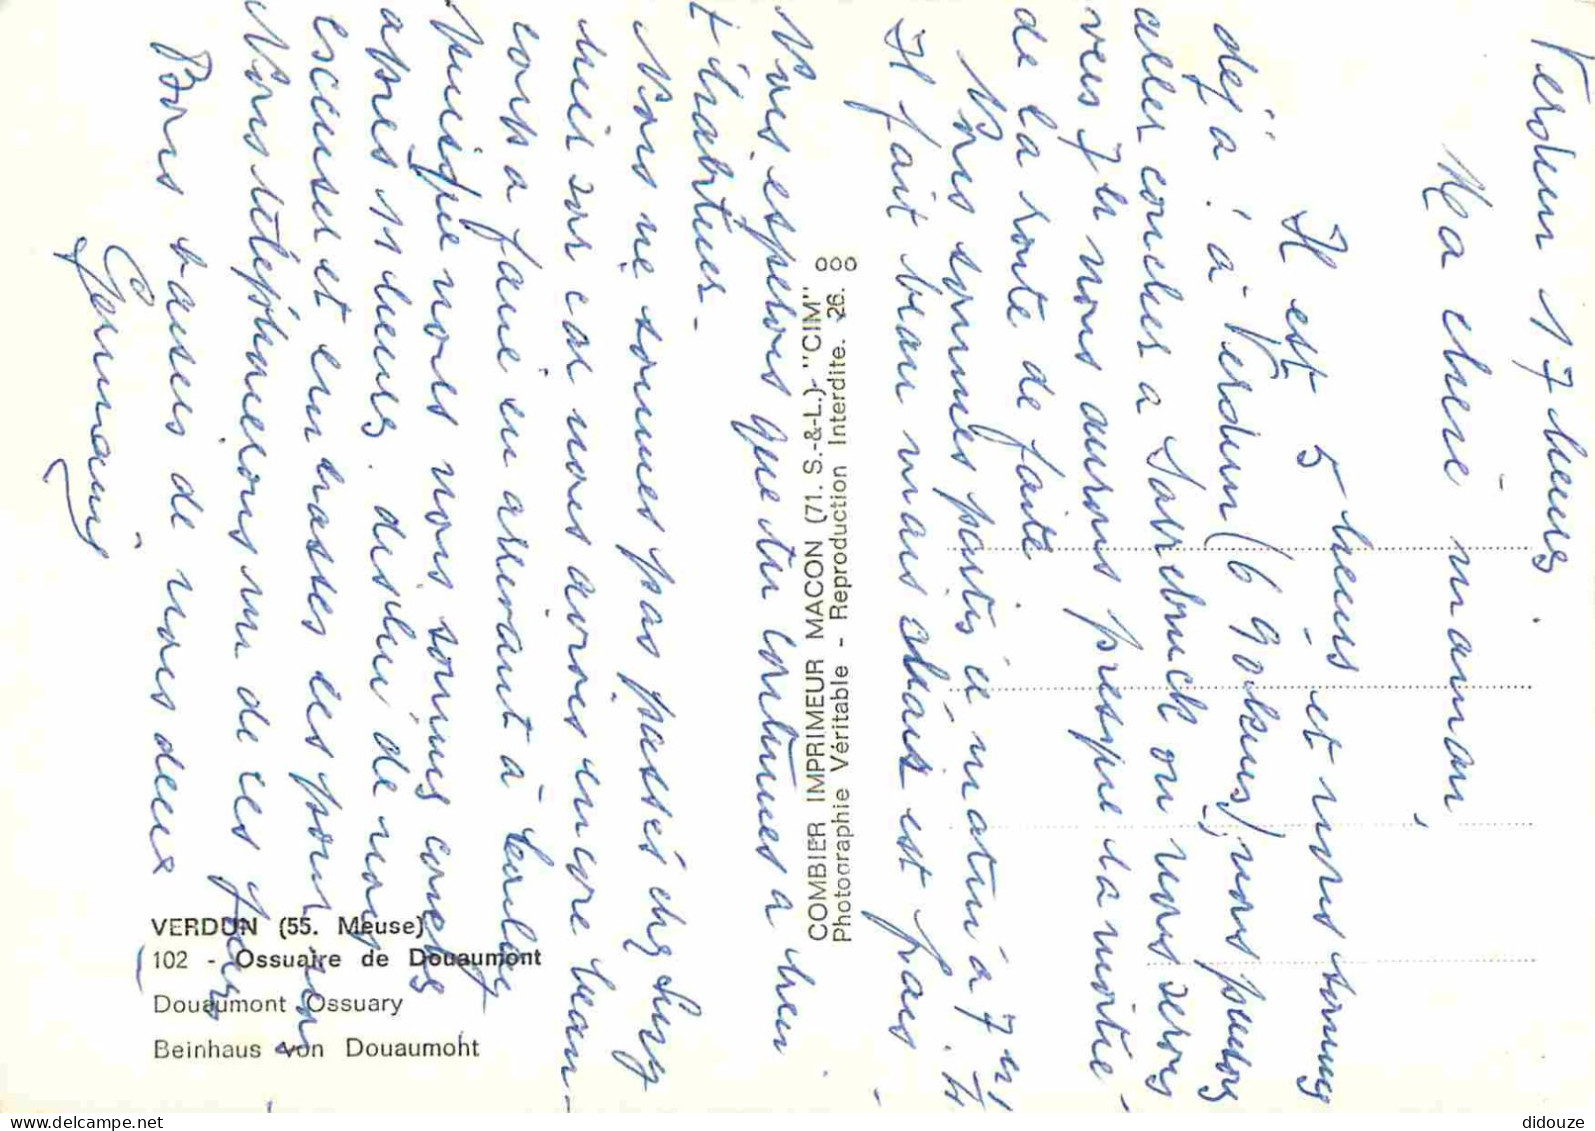 Verdun 17 heures
Ma cherie maman,
Il est 5 heures et nous sommes
déjà ! à Verdun (690 kms), nous pensons
aller coucher a Sarrebruck ou nous serons
vers 7h nous aurons presque la moitié
de la route de faite
Nous sommes partis ce matin à 7h
Il fait beau mais mais est frais
Nous espérons que tu continues a bien
t'habituer -
Nous ne sommes pas passés chez
hier soir car nous avions encore beau-
coup a faire en arrivant à
puisque nous nous sommes couchés
après 11 heures.
excuser et embrasses les pour nous
Nous téléphonerons un de ces jours
Bons baisers de nous deux
Germaine
COMBIER IMPRIMEUR MACON (71. S.-&-L.) "CIM"
Photographie Véritable - Reproduction Interdite. 26.
VERDUN (55. Meuse)
102 - Ossuaire de Douaumont
Douaumont Ossuary
Beinhaus von Douaumont
didouze